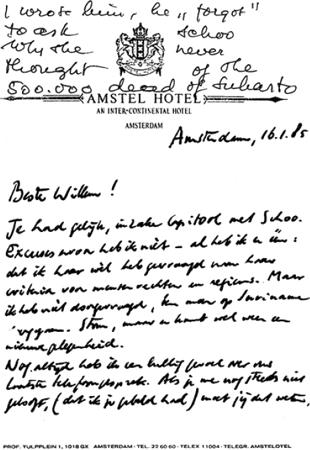 I wrote him, he "forgot"
to ask Schoo
why she never
thought of the
500.000 dead of Suharto
AMSTEL HOTEL
AN INTER-CONTINENTAL HOTEL
AMSTERDAM
Amsterdam, 16.1.85
Beste Willem!
Je had gelijk, inzake Capitool met Schoo.
Excuses ervoor heb ik niet – al heb ik er één:
dat ik haar wél heb gevraagd naar haar
criteria voor mensenrechten en regiems. Maar
ik heb niet doorgevraagd, ben maar op Suriname
Stom, maar er komt wel weer een
nieuwe gelegenheid.
Nog altijd heb ik een gevoel over ons
laatste telefoongesprek. Als je me nog steeds niet
gelooft, (dat ik je gebeld had) moet jij dat weten,
PROF. TULPPLEIN 1, 1018 GX AMSTERDAM - TEL. 22 60 60 - TELEX 11004 - TELEGR. AMSTELOTEL